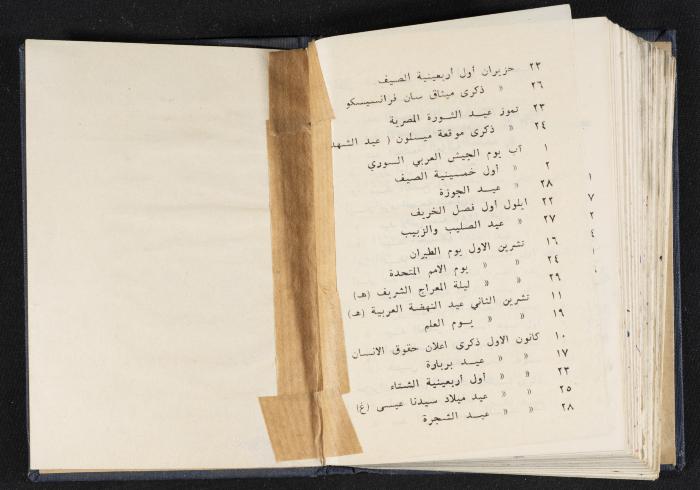 ٢٣ حزيران أول أربعينية الصيف
٢٦ « ذكرى ميثاق سان فرانسيسكو
٢٣ تموز عيد الثورة المصرية
٢٤ « ذكرى موقعة ميسلون ( عيد الشهد
١ آب يوم الجيش العربي السوري
٢ « أول خمسينية الصيف
٢٨ « عيد الجوزة
٢٢ ايلول أول فصل الخريف
٢٧ « عيد الصليب والزبيب
١٦ تشرين الاول يوم الطيران
٢٤ « « يوم الامم المتحدة
٢٩ « « ليلة المعراج الشريف (هـ)
١١ تشرين الثاني عيد النهضة العربية (هـ)
١٩ « « يوم العلم
١٠ كانون الاول ذكرى اعلان حقوق الانسان
١٧ « « عيد بربارة
٢٣ « « أول أربعينية الشتاء
٢٥ « « عيد ميلاد سيدنا عيسى (غ)
٢٨ « « عيد الشجرة
١
٧
٢
٤